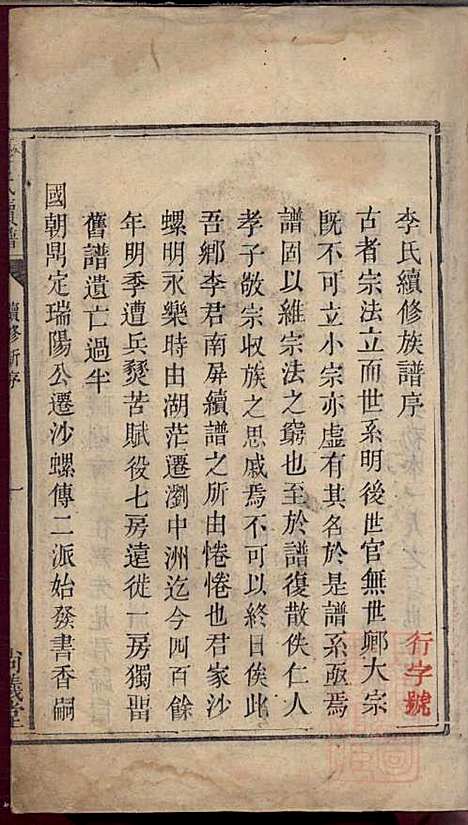 李氏續修族譜序
行字號
古者宗法立而世系明後世官無世卿大宗
既不可立小宗亦虛有其名於是譜系啟焉
譜固以維宗法之窮也至於譜復散佚仁人
孝子敬宗收族之思戚焉不可以終日俟此
吾鄉李君南屏續譜之所由惓惓也君家沙
螺明永樂時由湖茫遷瀏中洲迄今四百餘
年明季遭兵燹苦賦役七房遠徙一房獨留
舊譜遺亡過半
國朝鼎定瑞陽公遷沙螺傳二派始發書香嗣
氏續譜
續修新序
一
尚義堂